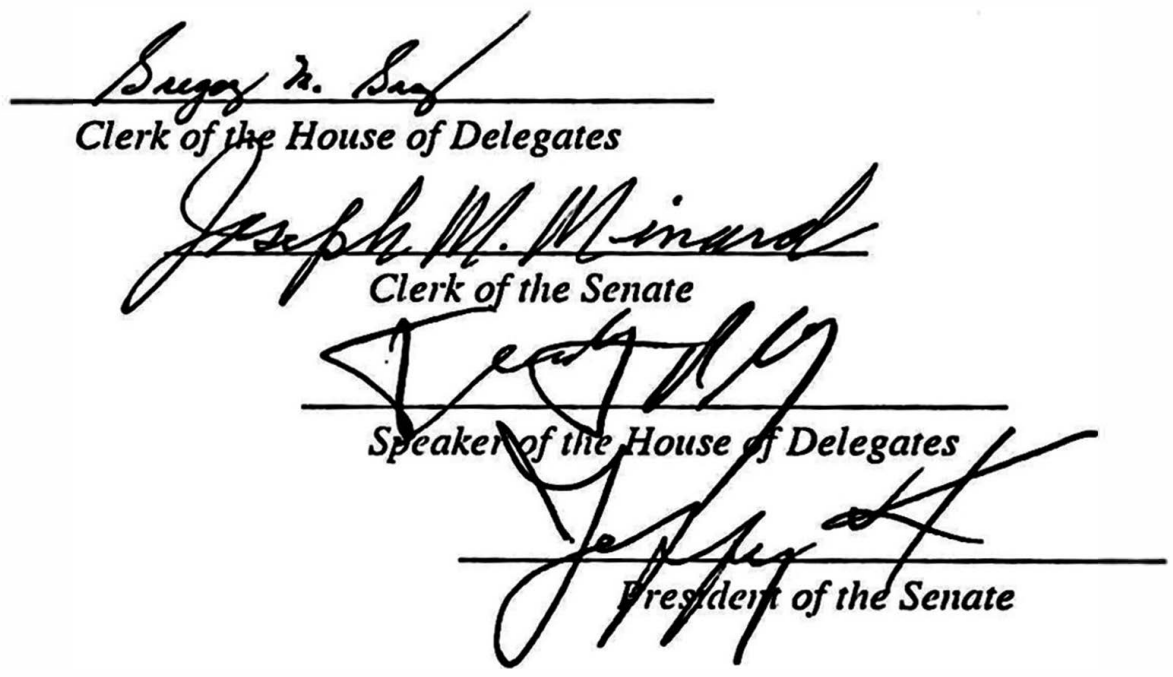 Gregory M. Gray
Clerk of the House of Delegates
Joseph M. Minard
Clerk of the Senate
Speaker of the House of Delegates
President of the Senate